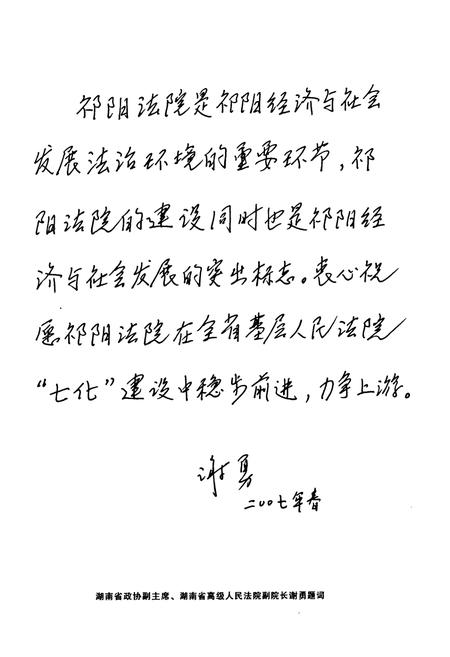 祁阳法院是祁阳经济与社会
发展法治环境的重要环节,祁
阳法院的建设同时也是祁阳经
济与社会发展的突出标志。衷心祝
愿祁阳法院在全省基层人民法院
“七化”建设中稳步前进,力争上游。
谢勇
二〇〇七年春
湖南省政协副主席、湖南省高级人民法院副院长谢勇题词